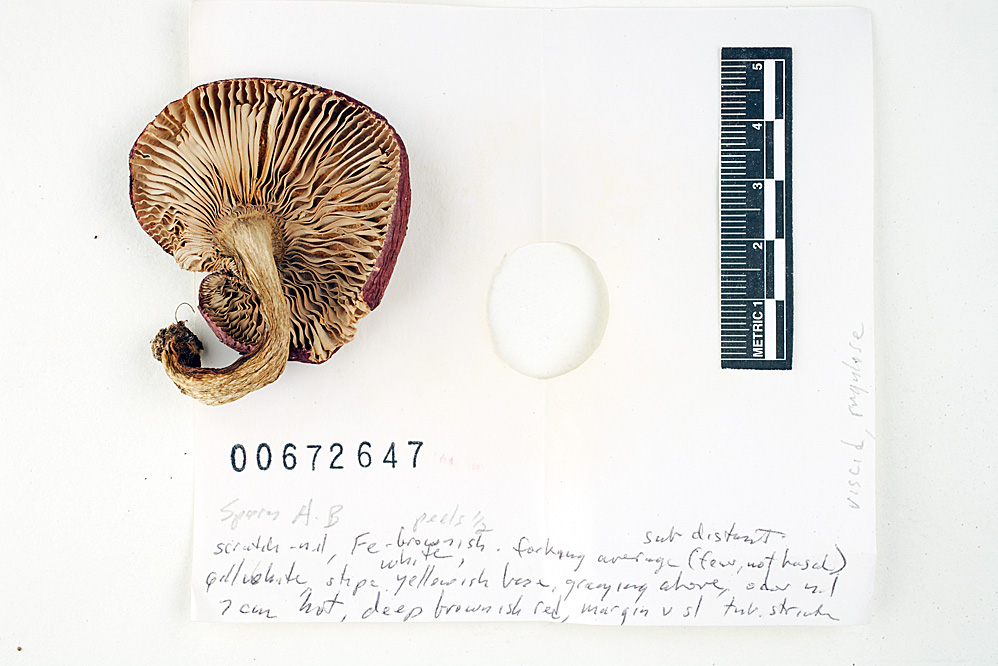 5
4
3
2
METRIC 1
viscid, rugulose
00672647
Spores A-B peels 1/2
scratch - nil, Fe - brownish. forking average (few, not basal) sub distant
white,
gill white, stipe yellowish base, graying above, odor nil
7 cm hot, deep brownish red, margin v sl tub. striate